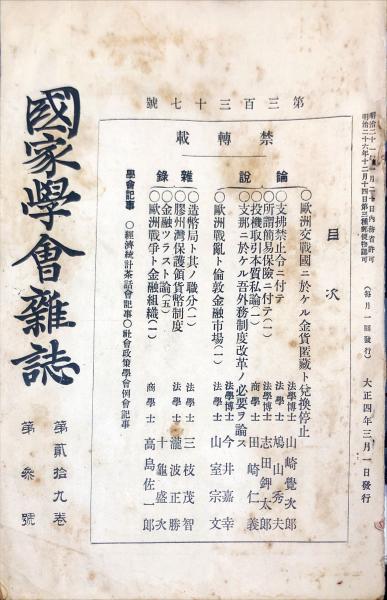 明治二十一年一月二十日内務省許可
明治二十六年十二月十四日第三種郵便物認可
(每月一回發行)
大正四年三月一日發行
第三百三十七號
禁轉載
目次
論說
○歐洲交戰國ニ於ケル金貨匿藏ト兌換停止 法學博士 山崎覺次郎
○支拂禁止令ニ付テ 法學士 鳩山秀夫
○所謂簡易保險ニ付テ(一) 法學博士 志田鉀太郎
○投機取引本質私論(一) 商學士 田崎仁義
○支那ニ於ケル吾外務制度改革ノ必要ヲ論ス 法學博士 今井嘉幸
○歐洲戰亂ト倫敦金融市場(一) 法學士 山室宗文
雜錄
○造幣局ト其ノ職分(一) 法學士 三枝茂智
○膠州灣保護領貨幣制度 法學士 瀧波正勝
○金融ツラスト論(五) 十龜盛次
○歐洲戰爭ト金融組織(一) 商學士 高島佐一郎
學會記事 ○經濟統計茶話會記事○社會政策學會例會記事
國家學會雜誌
第貳拾九卷
第參號